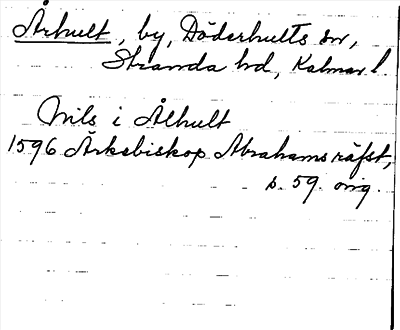 Århult, by, Döderhults sn,
Stranda hd, Kalmar l.
Nils i Ålhult
1596 Ärkebiskop Abrahams räfst,
s. 59. orig.